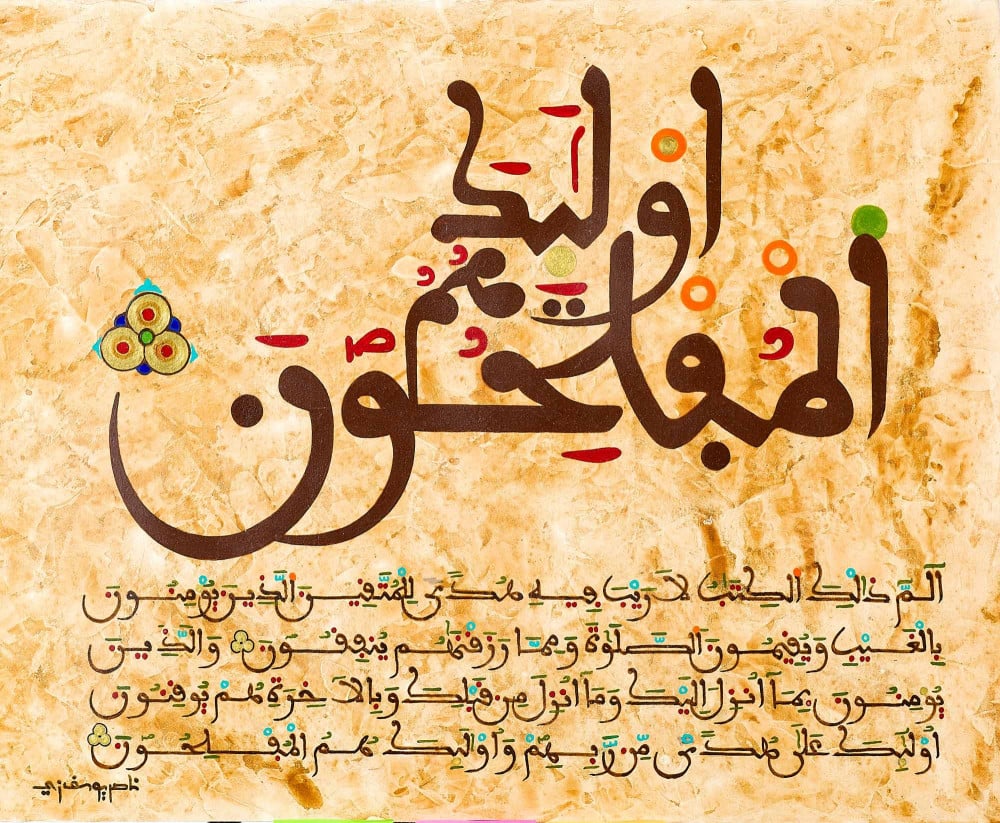 أُوْلَٰئِكَ
هُمُ
الْمُفْلِحُونَ
الٓمٓ ذَٰلِكَ الْكِتَٰبُ لَا رَيْبَ فِيهِ هُدًى لِّلْمُتَّقِينَ الَّذِينَ يُومِنُونَ
بِالْغَيْبِ وَيُقِيمُونَ الصَّلَوٰةَ وَمِمَّا رَزَقْنَٰهُمْ يُنفِقُونَ وَالَّذِينَ
يُومِنُونَ بِمَا أُنزِلَ إِلَيْكَ وَمَا أُنزِلَ مِن قَبْلِكَ وَبِالَاخِرَةِ هُمْ يُوقِنُونَ
أُوْلَٰئِكَ عَلَىٰ هُدًى مِّن رَّبِّهِمْ وَأُوْلَٰئِكَ هُمُ الْمُفْلِحُونَ
ناصر يوسفزي